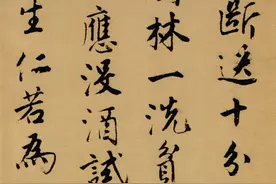 斷送十分
林一洗貧
應漫酒試
生仁若為